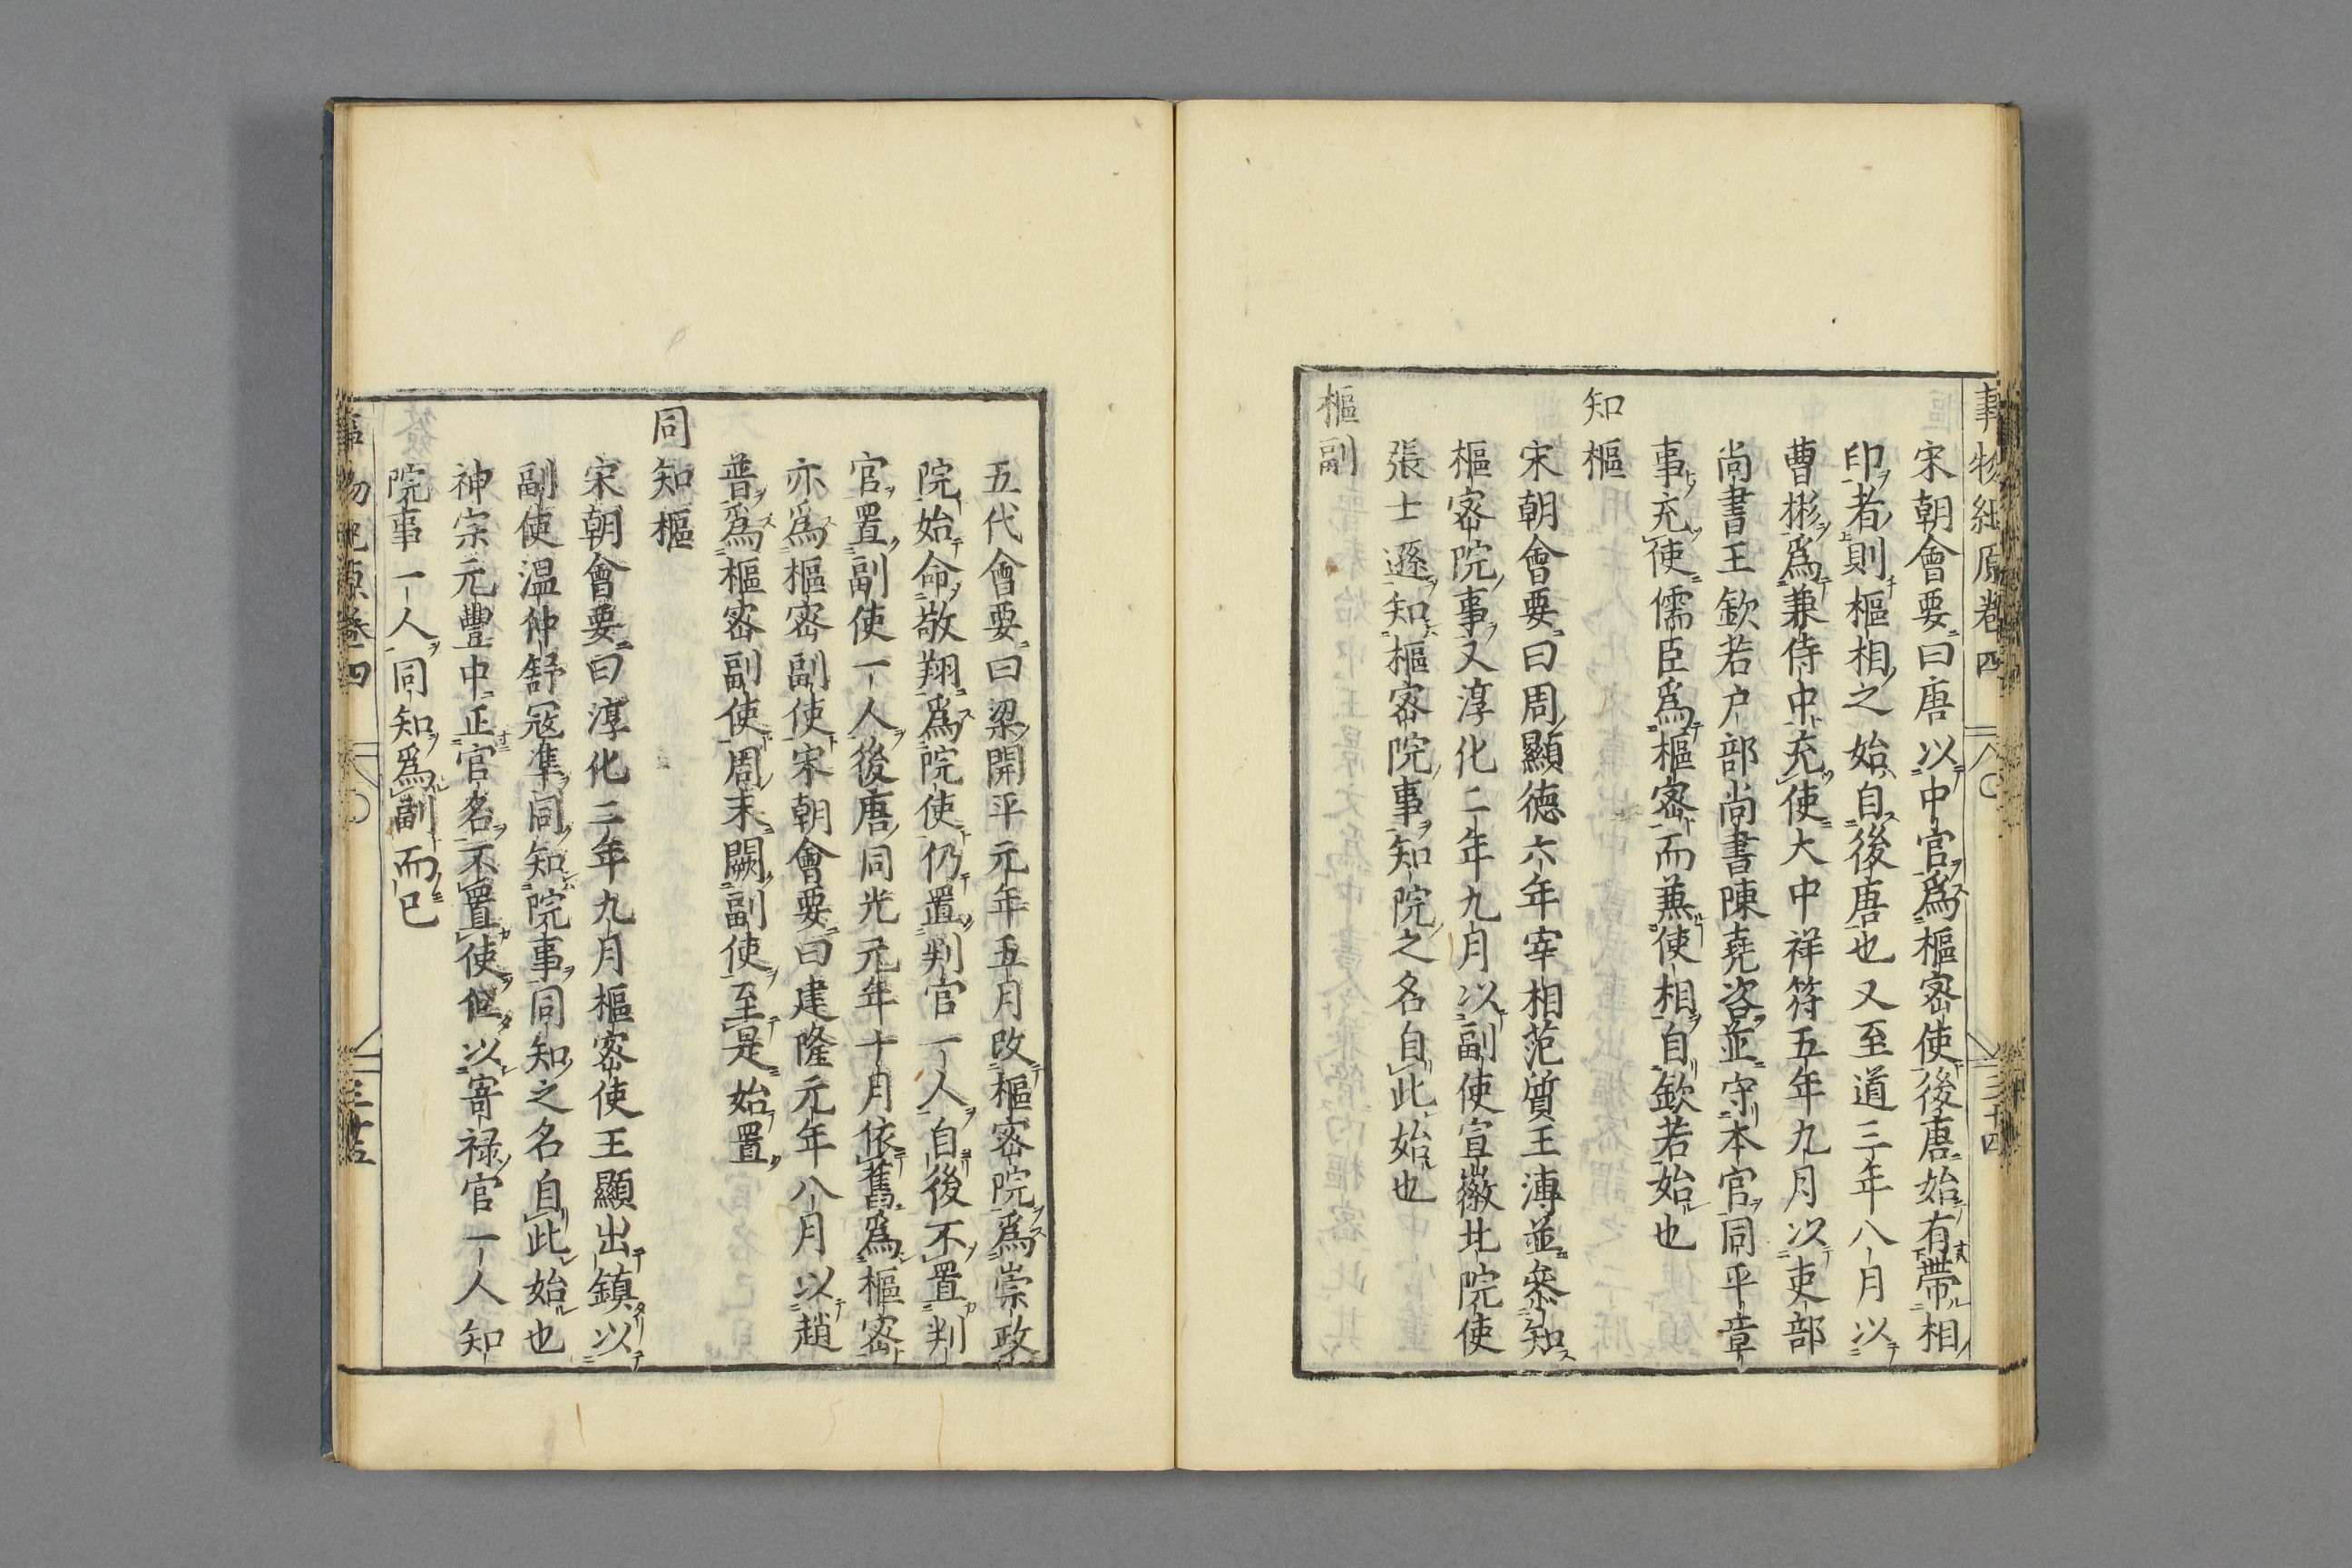 事物紀原卷四
三十四
宋朝會要曰唐以中官爲樞密使後唐始有帶相
印者則樞相之始自後唐也又至道三年八月以
曹彬爲兼侍中充使大中祥符五年九月以吏部
尚書王欽若户部尚書陳堯咨並守本官同平章
事充使儒臣爲樞密而兼使相自欽若始也
知樞
宋朝會要曰周顯德六年宰相范質王溥並參知
樞密院事又淳化二年九月以副使宣徽北院使
張士遜知樞密院事知院之名自此始也
樞副
五代會要曰梁開平元年五月改樞密院爲崇政
院始命敬翔爲院使仍置判官一人自後不置判
官置副使一人後唐同光元年十月依舊爲樞密
亦爲樞密副使宋朝會要曰建隆元年八月以趙
普爲樞密副使周末闕副使至是始置
同知樞
宋朝會要曰淳化三年九月樞密使王顯出鎮以
副使温仲舒冦準同知院事同知之名自此始也
神宗元豐中正官名不置使但以寄禄官一人知
院事一人同知爲副而已
事物紀原卷四
三十五